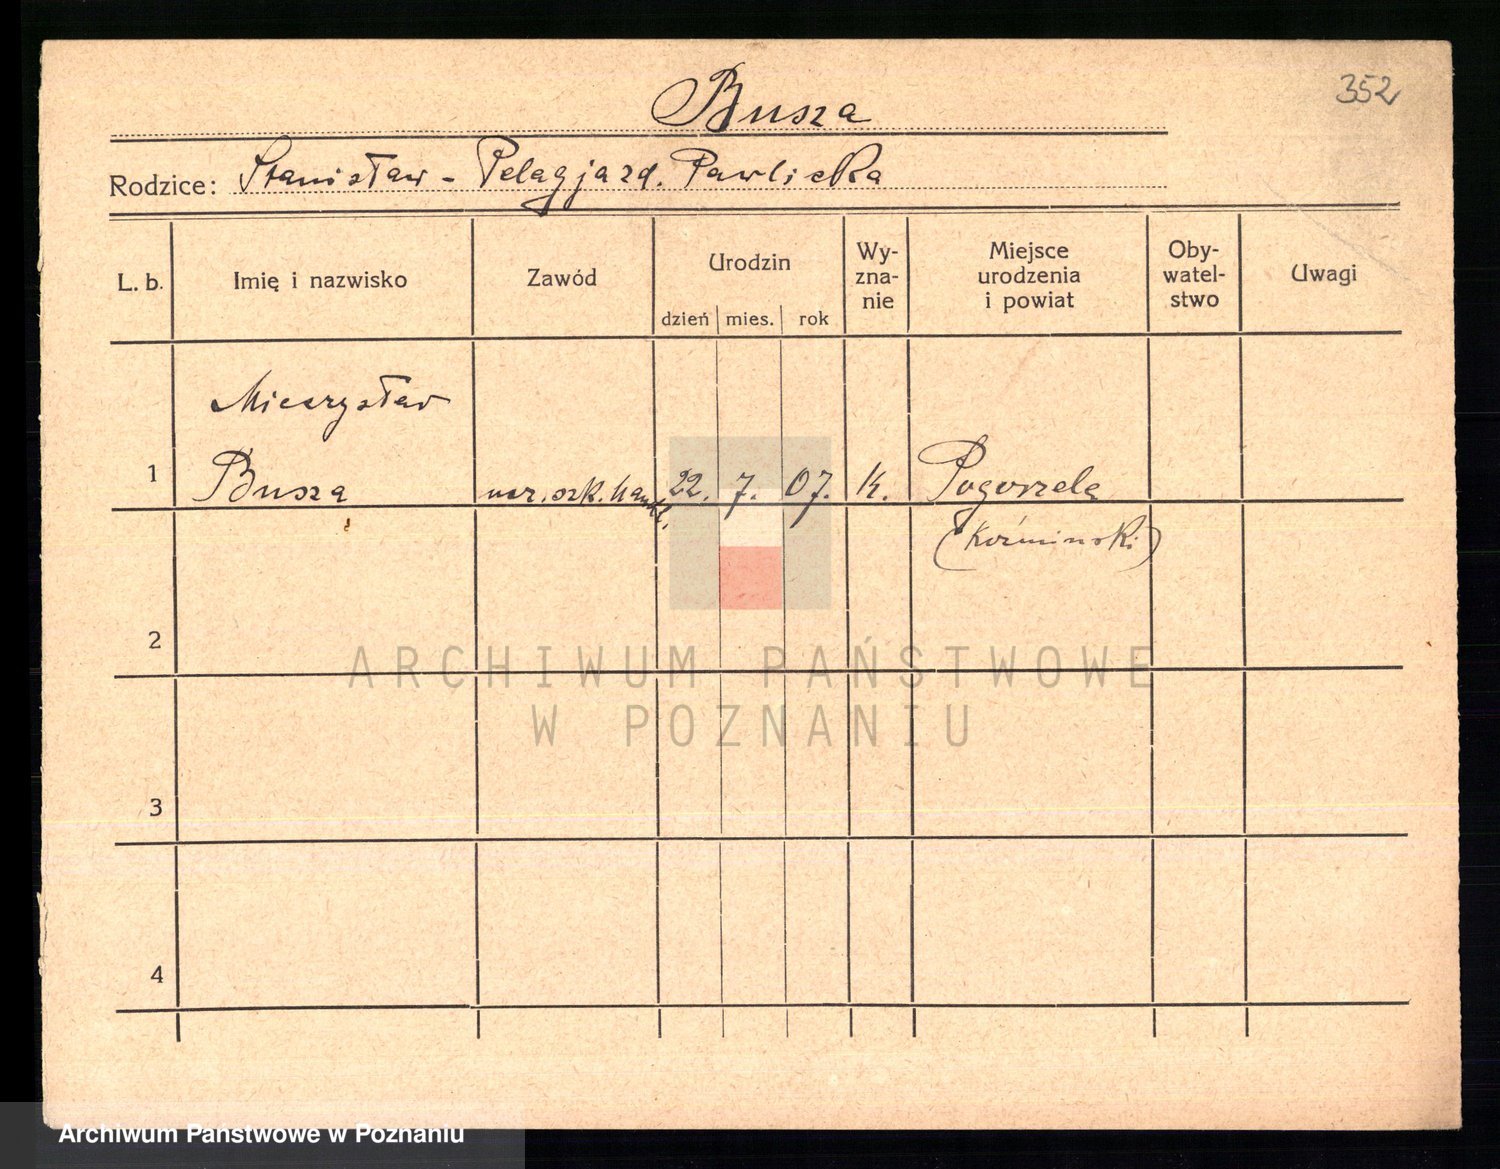 352
Busza
Rodzice: Stanisław - Pelagja zd. Pawlicka
L. b.
Imię i nazwisko
Zawód
Urodzin
dzień mies. rok
Wy-
zna-
nie
Miejsce
urodzenia
i powiat
Oby-
watel-
stwo
Uwagi
Mieczysław
1 Busza ucz. szk. handl. 22. 7. 07. K. Pogorzela
(Koźminski)
2
3
4
ARCHIWUM PAŃSTWOWE
W POZNANIU
Archiwum Państwowe w Poznaniu